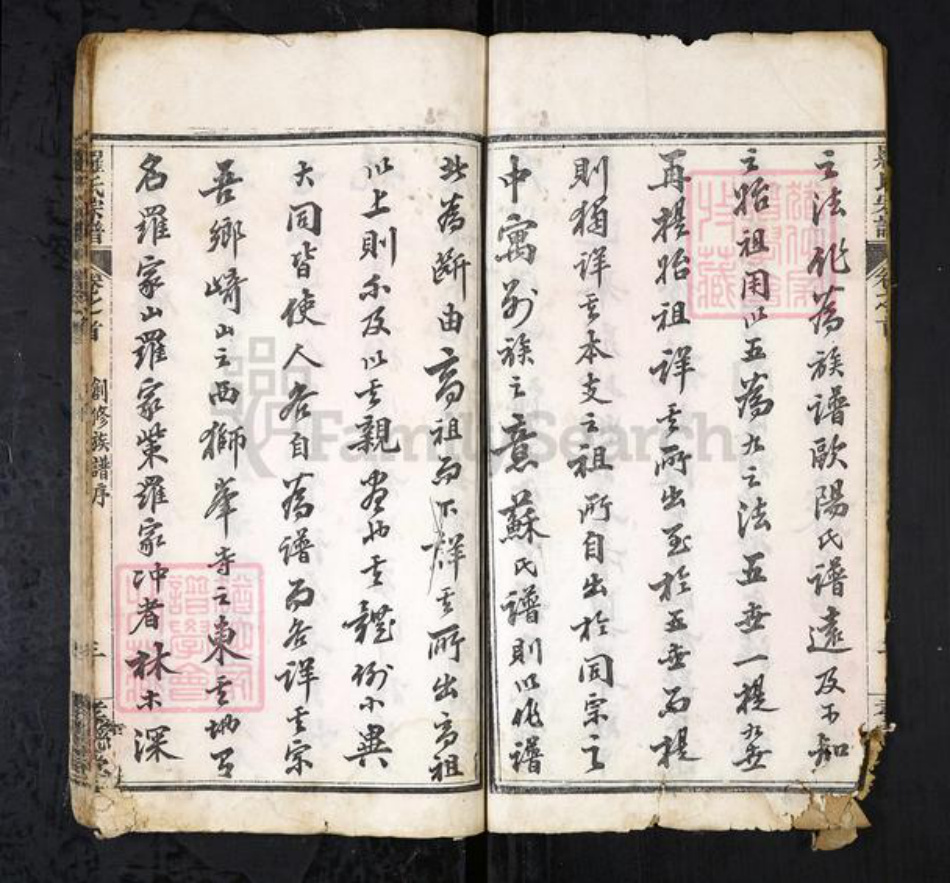 之法作為族譜歐陽氏譜遠及不知
之始祖用以五為九之法五世一提九世
再提始祖詳其所出至於五世而提
則獨詳其本支之祖所自出於同宗之
中寓別族之意蘇氏譜則以作譜
此為斷由高祖而下詳其所出高祖
以上則不及以其親盡也其體例小異
大同皆使人各自為譜而各詳其宗
吾鄉崎山之西獅峯寺之東其坳有
名羅家山羅家柴羅家冲者林木深
羅氏宗譜
卷之首
創修族譜序
三
FamilySearch